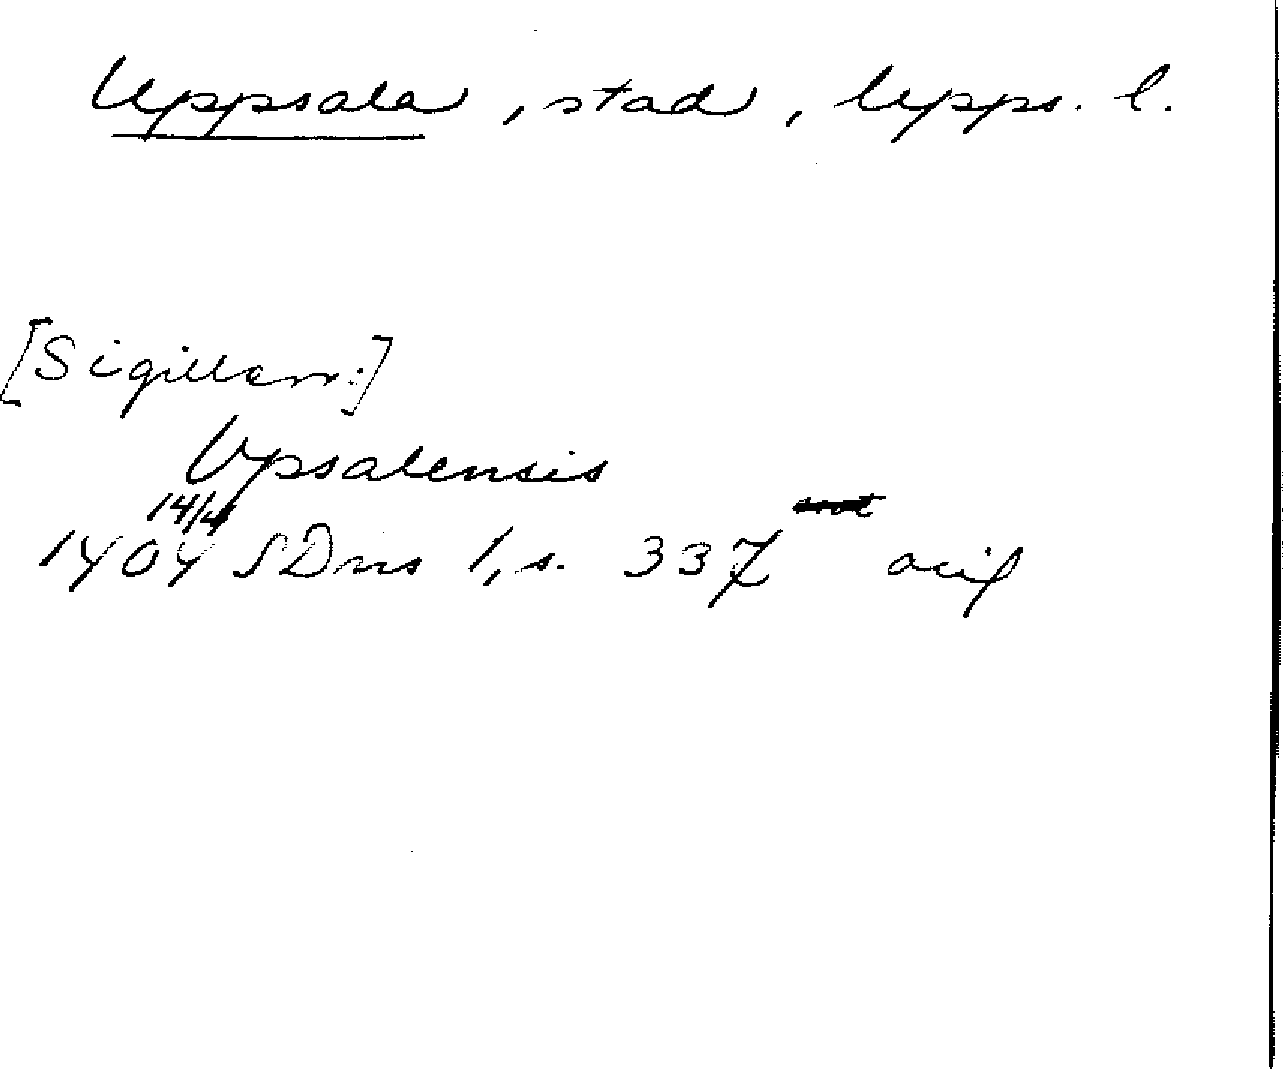 Uppsala, stad, Upps. l.
[Sigillum:]
Upsalensis
14/4
1404 SDns 1, s. 337 orig